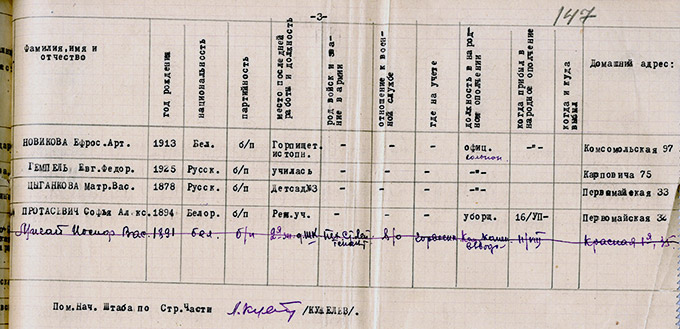 -3-
147
Фамилия,имя и отчество
год рождения
национальность
партийность
место последней работы и должность
род войск и звание в армии
отношение к военной службе
где на учете
должность в народном ополчении
когда прибыл в народное ополчение
когда и куда выбыл
Домашний адрес:
НОВИКОВА Ефрос.Арт. 1913 Бел. б/п Горпищет. истопн. - - - офиц. -"- Комсомольская 97
ГЕМПЕЛЬ Евг.Федор. 1925 Русск. б/п училась - - - -"- Карповича 75
ЦЫГАНКОВА Матр.Вас. 1878 Русск. б/п Детсад№3 - - - -"- Первомайская 33
ПРОТАСЕВИЧ Софья Алкс. 1894 Белор. б/п Рем.уч. - - - уборщ. 16/УП- Первомайская 34
Иосиф Вас. 1891 бел. б/п в/о Красная
Пом.Нач. Штаба по Стр.Части /КУЖЕЛЕВ/.